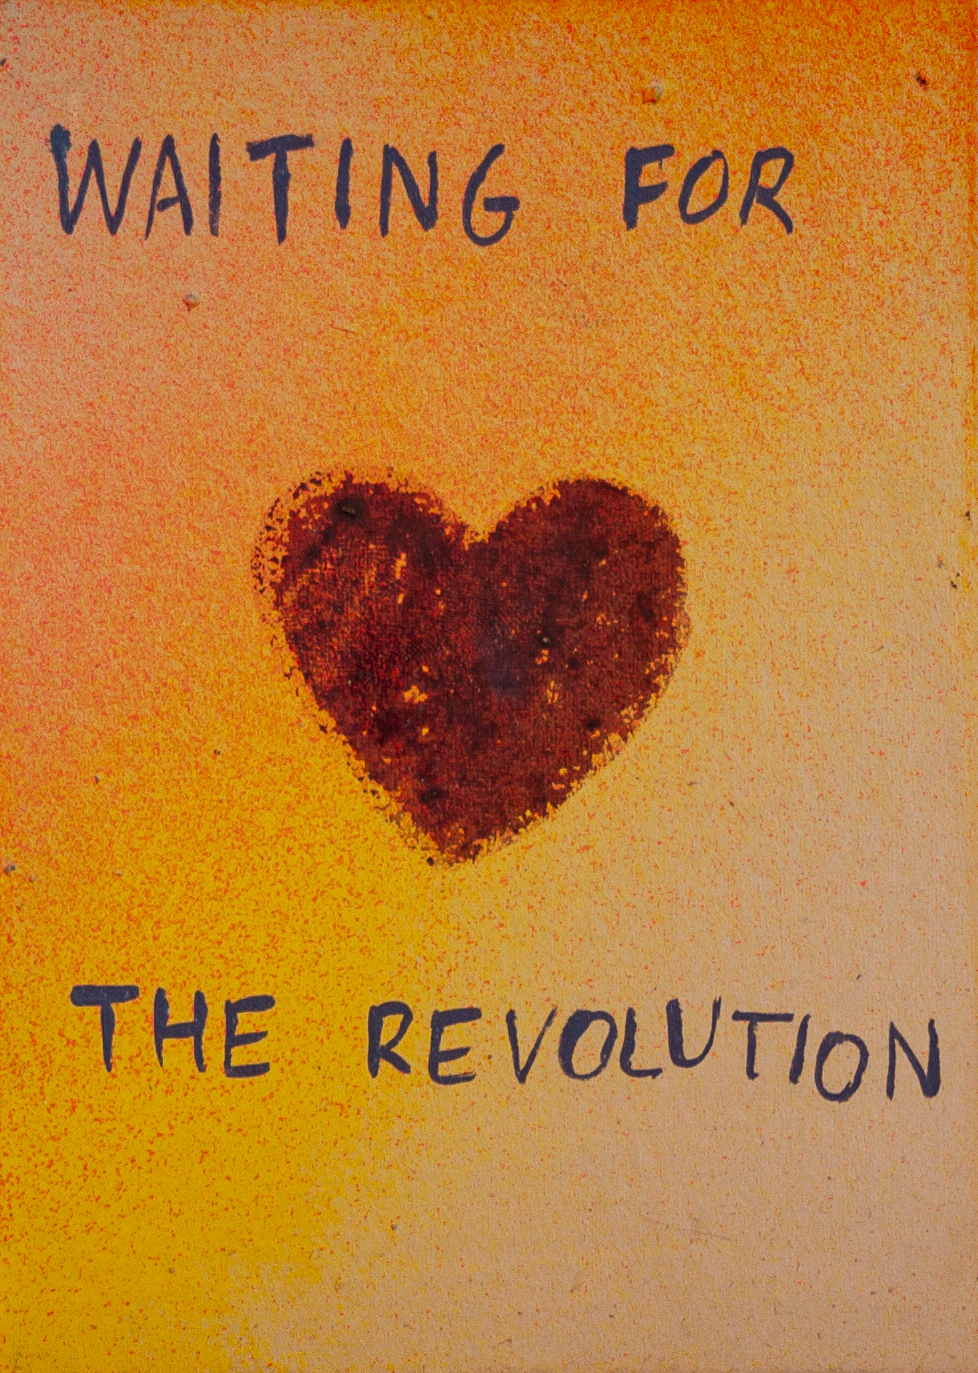 WAITING FOR
THE REVOLUTION